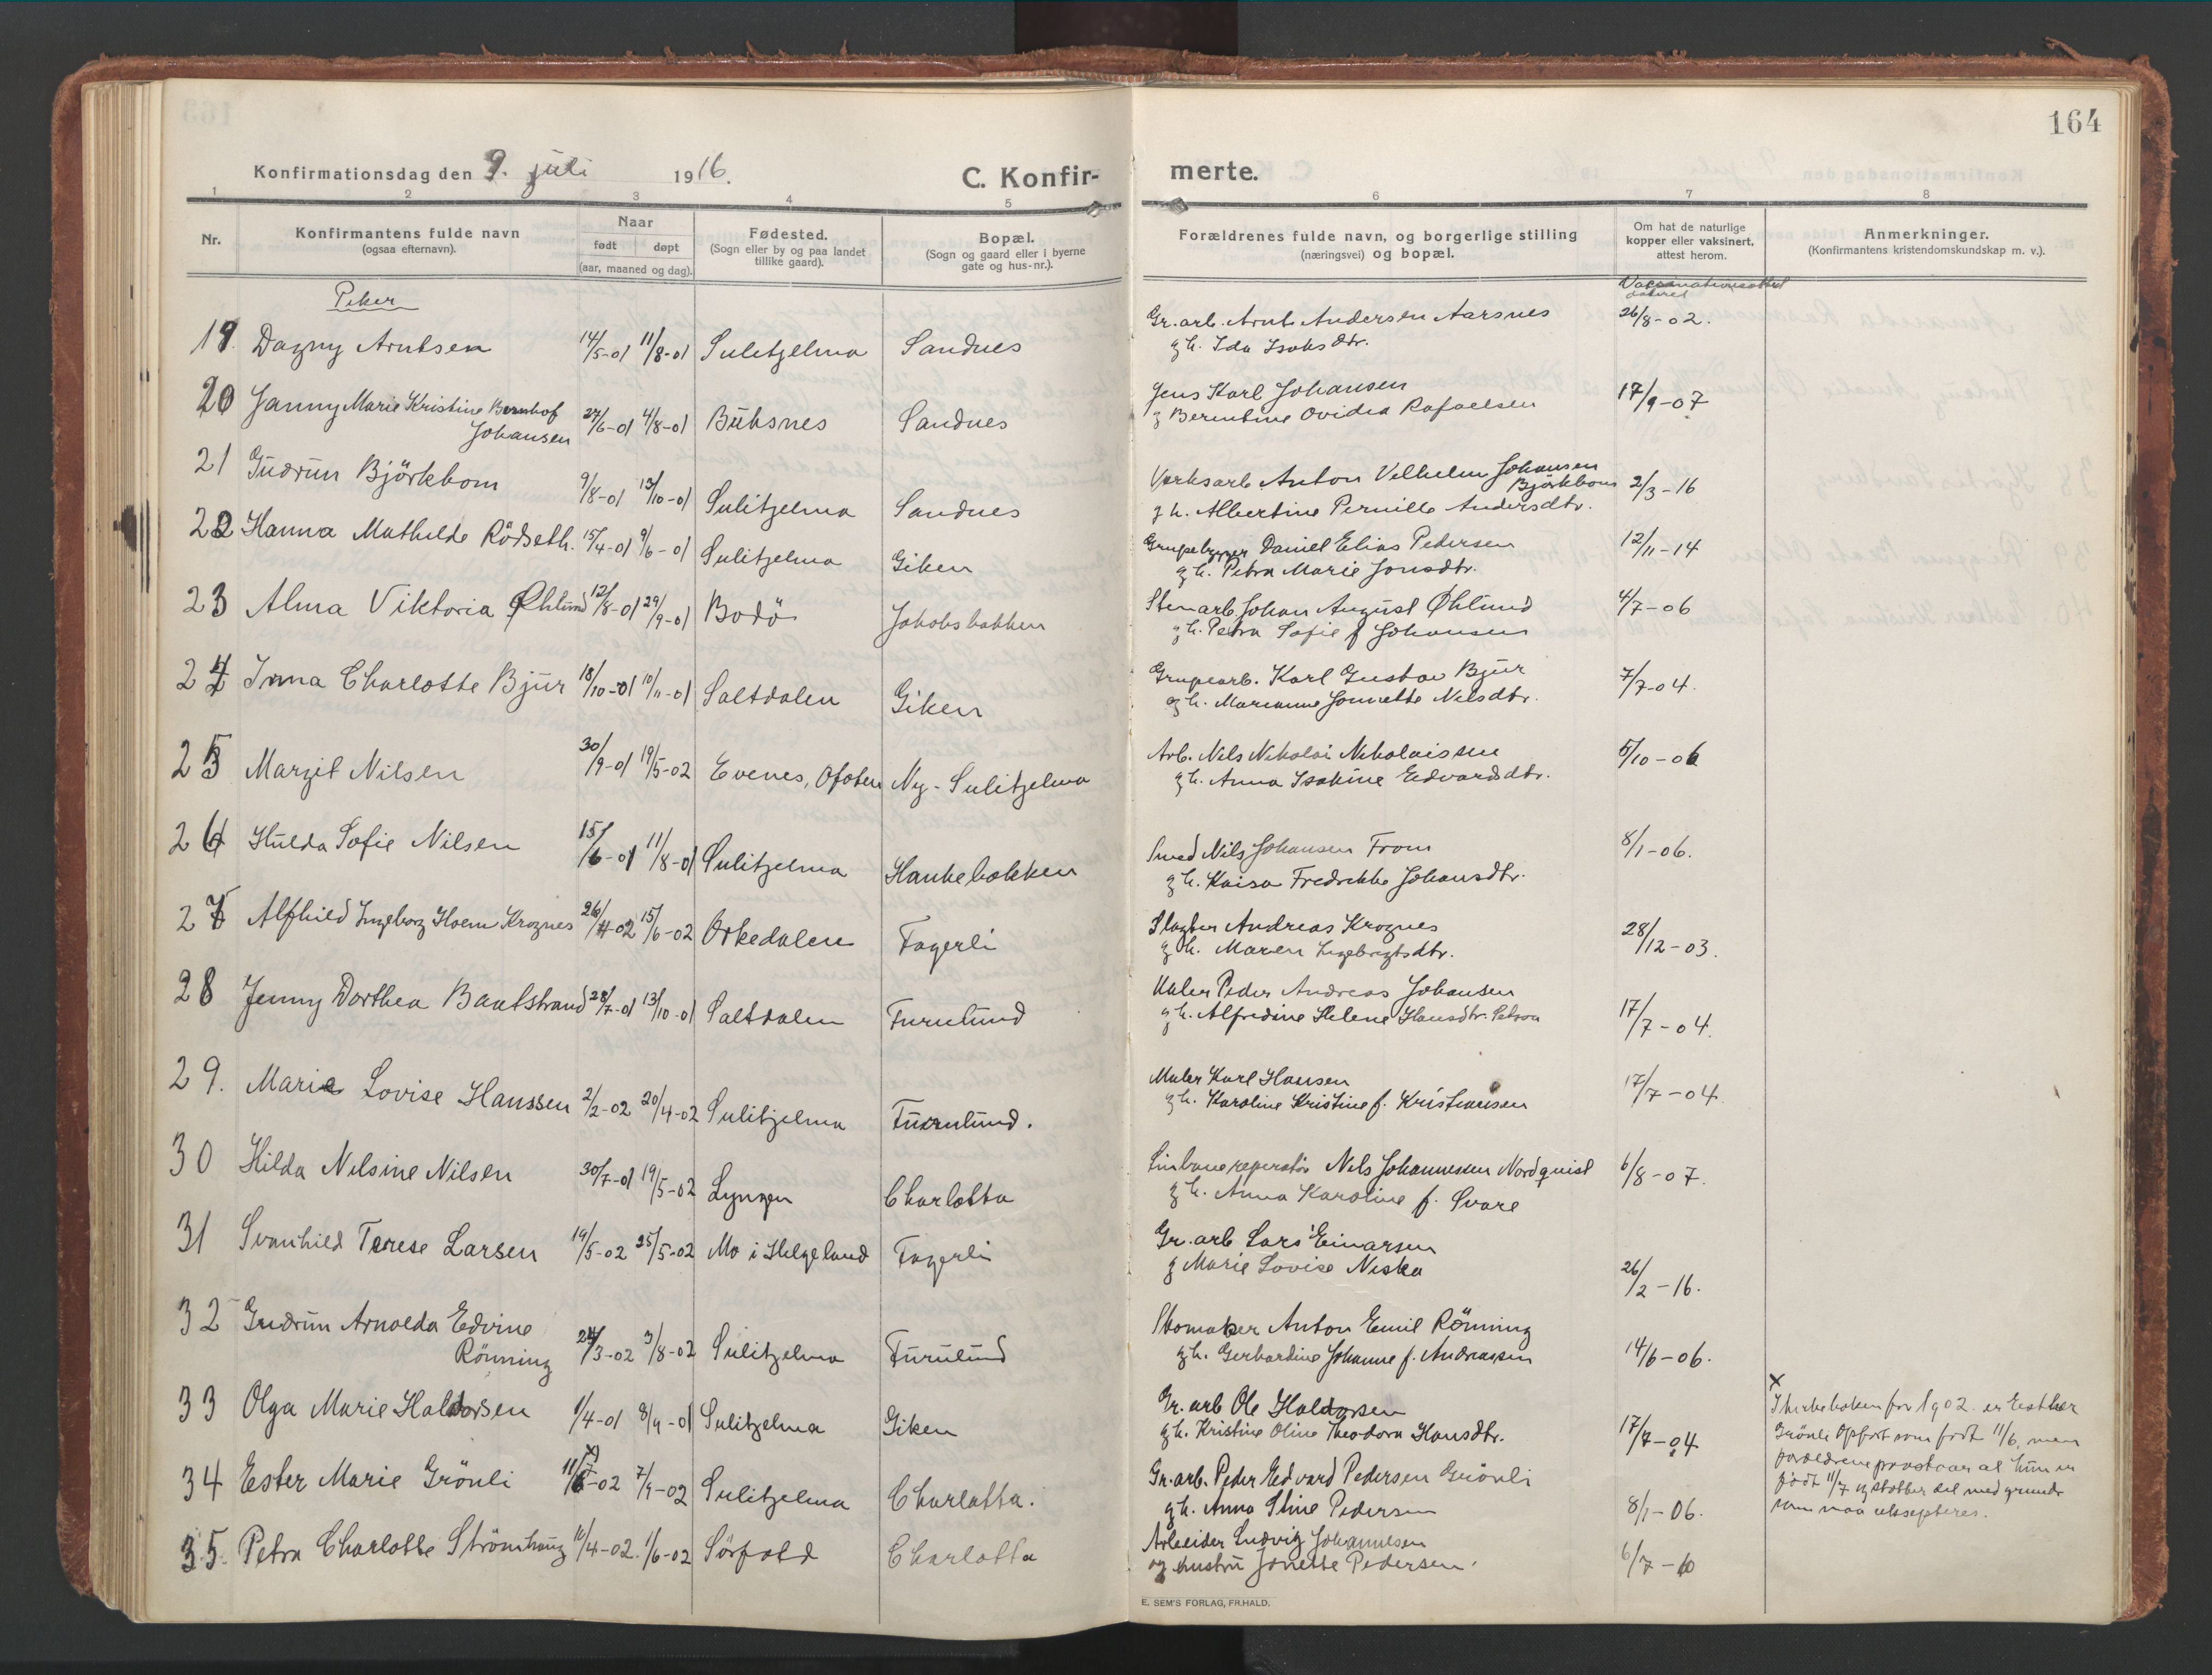 164
Konfirmationsdag den 9. juli 1916.
C. Konfir-
merte.
1 2 3 4 5 6 7 8
Nr.
Konfirmantens fulde navn
(ogsaa efternavn).
Naar
født døpt
(aar, maaned og dag).
Fødested.
(Sogn eller by og paa landet
tillike gaard).
Bopæl.
(Sogn og gaard eller i byerne
gate og hus-nr.).
Forældrenes fulde navn, og borgerlige stilling
(næringsvei) og bopæl.
Om hat de naturlige
kopper eller vaksinert,
attest herom.
Anmerkninger.
(Konfirmantens kristendomskundskap m. v.).
Piker
19. Dagny Arntsen 14/5-01 11/8-01 Sulitjelma Sandnes
Gr. arb. Arnt Andersen Aarsnes 26/8-02.
g h. Ida Isaksdtr.
20 Janny Marie Kristine Bernhof
Johansen 27/6-01 4/8-01 Buksnes Sandnes
Jens Karl Johansen 17/9-07
g Berentine Ovidia Rafaelsen
21 Gudrun Björkbom 9/8-01 13/10-01 Sulitjelma Sandnes
Verksarb Anton Vilhelm Johansen
Björkbom 2/3-16
g h. Albertine Pernille Andersdtr.
22 Hanna Mathilde Rödseth. 15/4-01 9/6-01 Sulitjelma Giken
Daniel Elias Pedersen 12/11-14
g h. Petra Marie Jonsdtr.
23 Alma Viktoria Øhlund 12/8-01 29/9-01 Bodö Jakobsbakken
Stenarb Johan August Øhlund 4/7-06
g h. Petra Sofie f Johansen
24 Irma Charlotte Bjur 18/10-01 10/11-01 Saltdalen Giken
Grupearb. Karl Gustav Bjur 7/7-04.
g h. Marianne Jonnette Nilsdtr.
25 Margit Nilsen 30/9-01 19/5-02 Evenes, Ofoten Ny-Sulitjelma
Arb. Nils Nikolai Nikolaissen 5/10-06
g h. Anna Isakine Edvardsdtr.
26 Hulda Sofie Nilsen 15/6-01 11/8-01 Sulitjelma Hankebakken
Smed Nils Johansen From 8/1-06.
g h. Kaisa Fredrikke Johansdtr.
27 Alfhild Ingeborg Hoem Krognes 26/4-02 15/6-02 Orkedalen Fagerli
Andreas Krognes 28/12-03.
g h. Maren Ingebrigtsdtr.
28 Jenny Dorthea Baatstrand 28/7-01 13/10-01 Saltdalen Furulund
Maler Peder Andreas Johansen 17/7-04.
g h. Alfredine Helene Hansdtr.
29. Marie Lovise Hanssen 2/2-02 20/4-02 Sulitjelma Furulund.
Maler Karl Hansen 17/7-04.
g h. Karoline Kristine f. Kristiansen
30 Hilda Nilsine Nilsen 30/7-01 19/5-02 Lyngen Charlotta
Linbanereperatør Nils Johannessen Nordquist 6/8-07.
g h. Anna Karoline f. Svare
31 Svanhild Terese Larsen 19/5-02 25/5-02 Mo i Helgeland Fagerli
Gr. arb Lars Einarsen
g Marie Lovise Niska 26/2-16.
32 Gudrun Arnolda Edvine
Rönning 24/3-02 3/8-02 Sulitjelma Furulund
Skomaker Anton Emil Rönning
g h. Gerhardine Johanne f. Andreassen 14/6-06.
33 Olga Marie Haldorsen 1/4-01 8/9-01 Sulitjelma Giken
Gr. arb Ole Haldorsen
g h. Kristine Oline Theodora Hansdtr. 17/7-04
34 Ester Marie Grönli 11/6-02 7/9-02 Sulitjelma Charlotta.
Gr. arb. Peder Edvard Pedersen Grönli
g h. Anna Stine Pedersen 8/1-06.
x
I kirkeboken for 1902 er Esther
Grönli opført som født 11/6, men
forældrene paastaar at hun er
født 11/7 og støtter det med grunde
som maa aksepteres.
35. Petra Charlotte Strömhaug 10/4-02. 1/6-02 Sörfold Charlotta
Arbeider Ludvig Johannesen
og hustru Jonette Pedersen. 6/7-10
E. SEM'S FORLAG, FR.HALD.